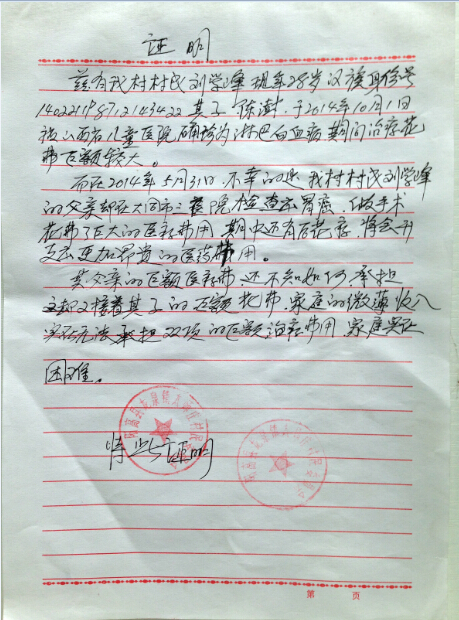 证明
兹有我村村民刘学峰 现年28岁 汉族身份号
140221198712143422 其子 陈澍,于2014年10月1日
被山西省儿童医院确诊为淋巴白血病 期间治疗花
费巨额较大。
而在2014年5月31日,不幸的是 我村村民刘学峰
的父亲却在大同市三医院,检查出胃癌,做手术
花费了巨大的医疗费用 期中还有后花疗,将会
支出更加昂贵的医药费用。
其父亲的巨额医疗费,还不知如何承担
又接着其子的巨额花费,家庭的微薄收入
实在无法承担双项的巨额治疗费用 家庭实在
困难。
特此证明
第 页